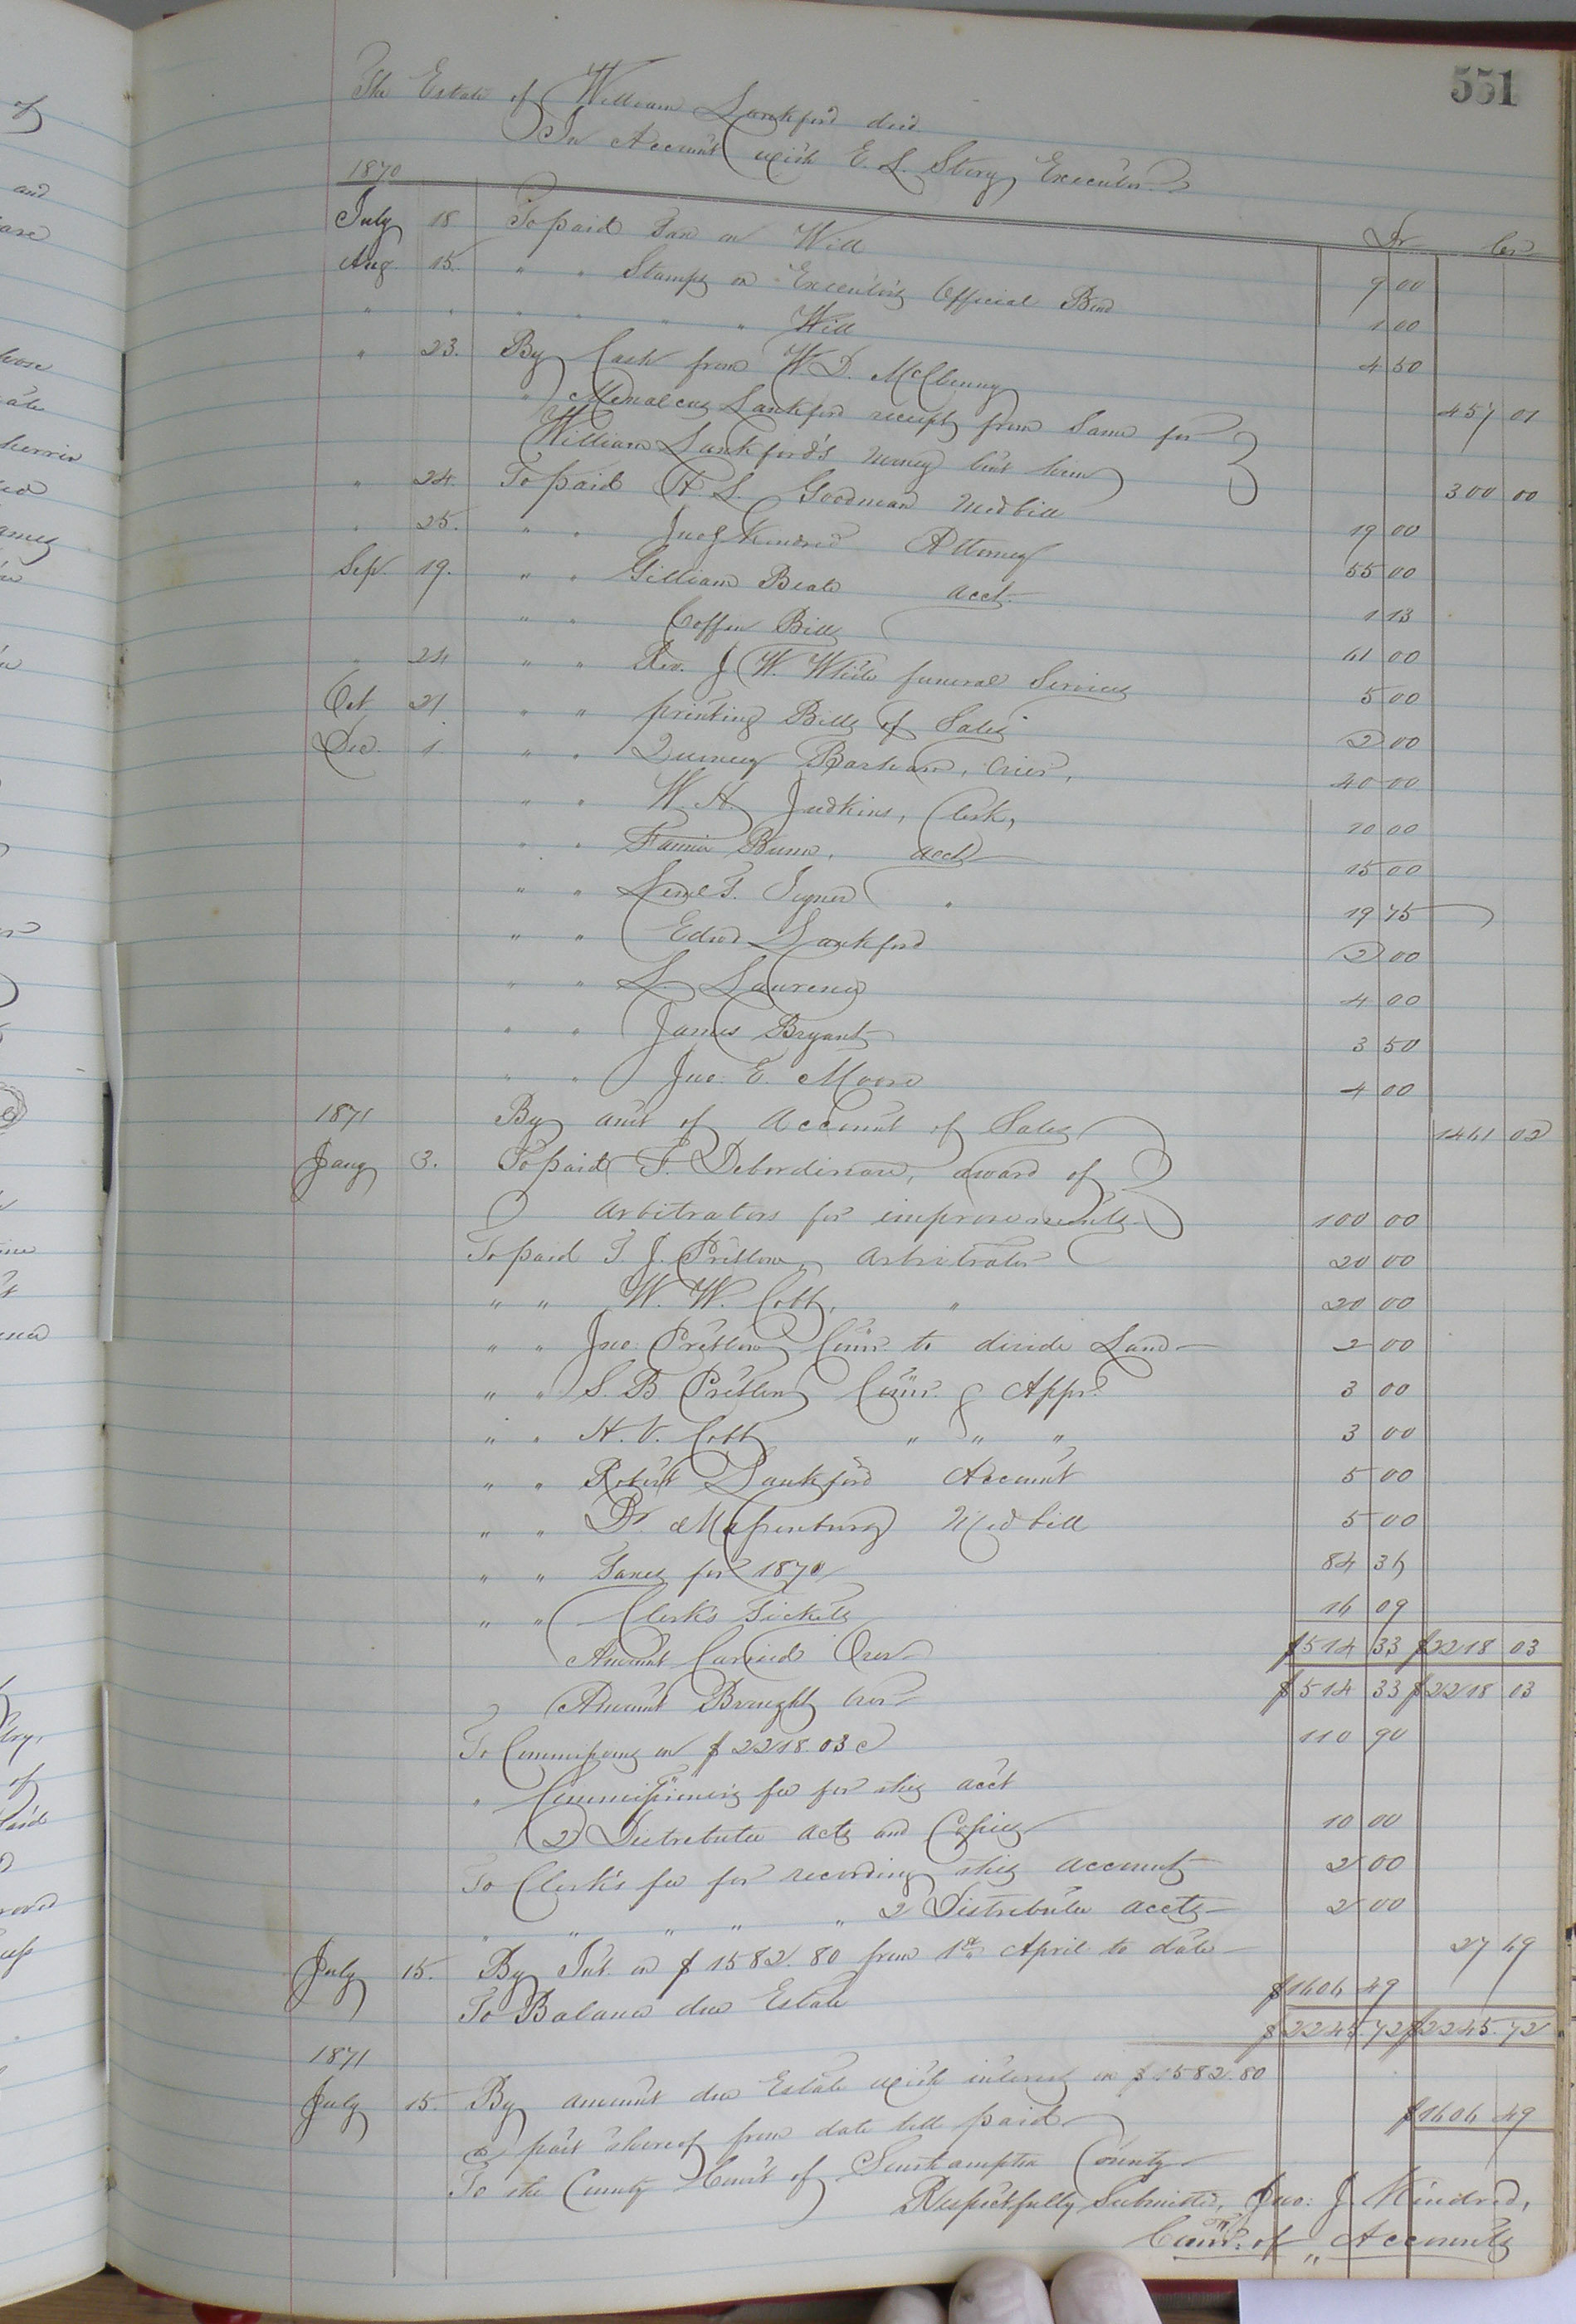 551
The Estate of William Lankford decd.
In Account with E. L. Story, Executor
1870 Dr Cr
July 18 To paid Tax on Will 9 00
Aug 15. " " Stamps on Executor's Official Bond 1 00
" " " " " " Will 4 50
" 23. By Cash from W. D. McClenny 457 01
" Lankford receipts from Same for
William Lankford's money lent him 300 00
" 24. To paid Goodman Med bill 19 00
" 25. " " Kindred Attorney 55 00
Sep. 19. " " Gilliam Beale acct. 1 13
" " Coffin Bill 61 00
" 24 " " Rev. J. W. White funeral Services 5 00
Oct 21 " " printing Bills of Sales 2 00
Dec. 1 " " Quincy Barham, Crier, 40 00
" " W. H. Judkins, Clerk, 20 00
" " Fannie Bunn, acct 15 00
" " Joyner " 19 75
" " Edwd Lankford 2 00
" " L. Laurence 4 00
" " James Bryant 3 50
" " Jno. E. Moore 4 00
1871 By amt of Account of Sales 1461 02
Jany 3. To paid award of
Arbitrators for improvements 100 00
To paid T. J. Pretlow, Arbitrator 20 00
" " W. W. Cobb, " 20 00
" " Jno. Pretlow Comr. to divide Land 2 00
" " S. B. Pretlow Comr. & Appr. 3 00
" " H. V. Cobb " " " 3 00
" " Robert Lankford Account 5 00
" " Dr. Massenburg Med bill 5 00
" " Taxes for 1870 84 36
" " Clerk's Tickets 16 09
Amount Carried Over $514 33 $2218 03
" Amount Brought Over $514 33 $2218 03
To Commissions on $2218.03 c 110 90
" Commissioner's fee for this acct
2 Distributee accts and Copies 10 00
To Clerk's fee for recording this account 2 00
" " " " " 2 Distributee accts 2 00
July 15. By Int. on $1582.80 from 1st April to date 27 69
To Balance due Estate $1606 49
$2245.72 $2245.72
1871
July 15. By amount due Estate with interest on $1582.80
a part thereof from date till paid $1606 49
To the County Court of Southampton County
Respectfully Submitted, Jno: J. Kindred,
Comr. of Accounts